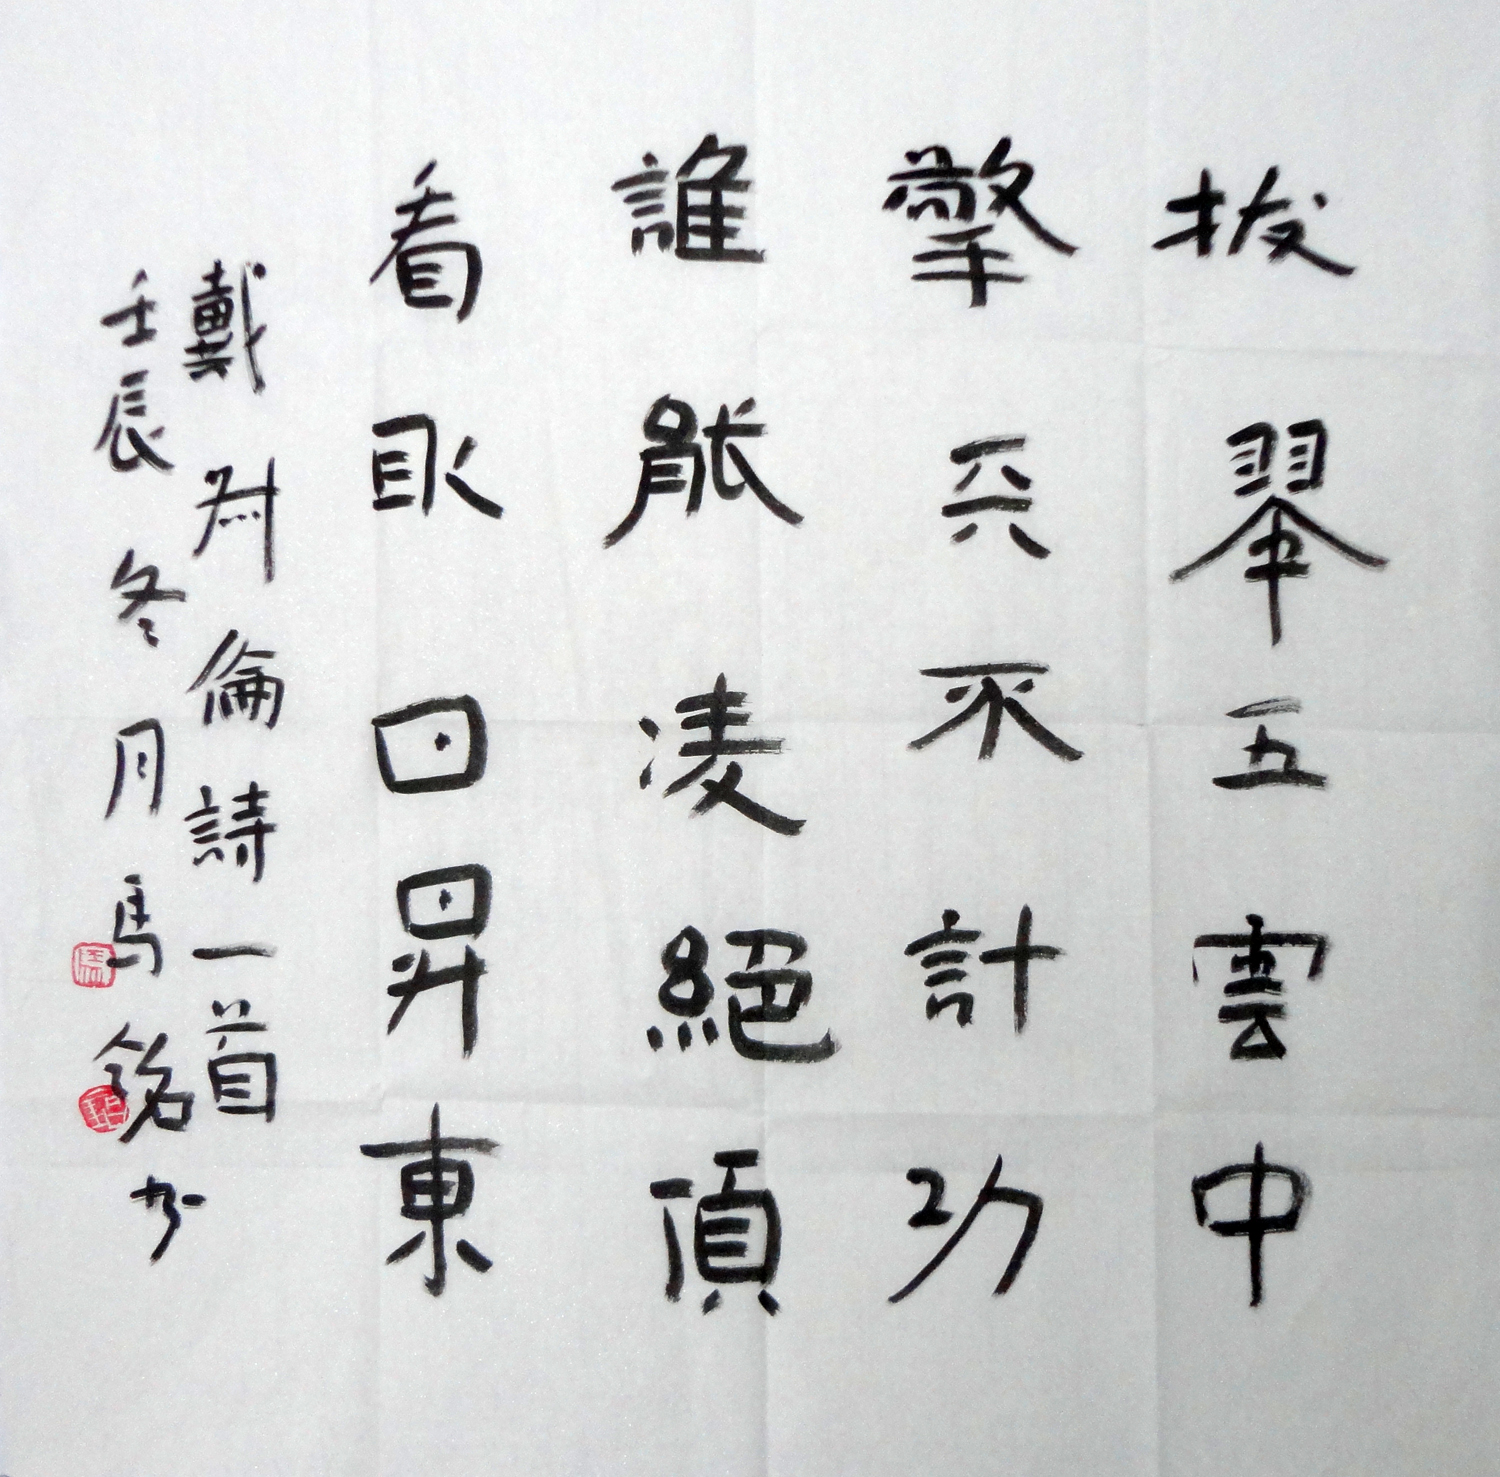 拔翠五雲中
擎天不計功
誰能凌絕頂
看取日昇東
戴叔倫詩一首
壬辰冬月馬銘书